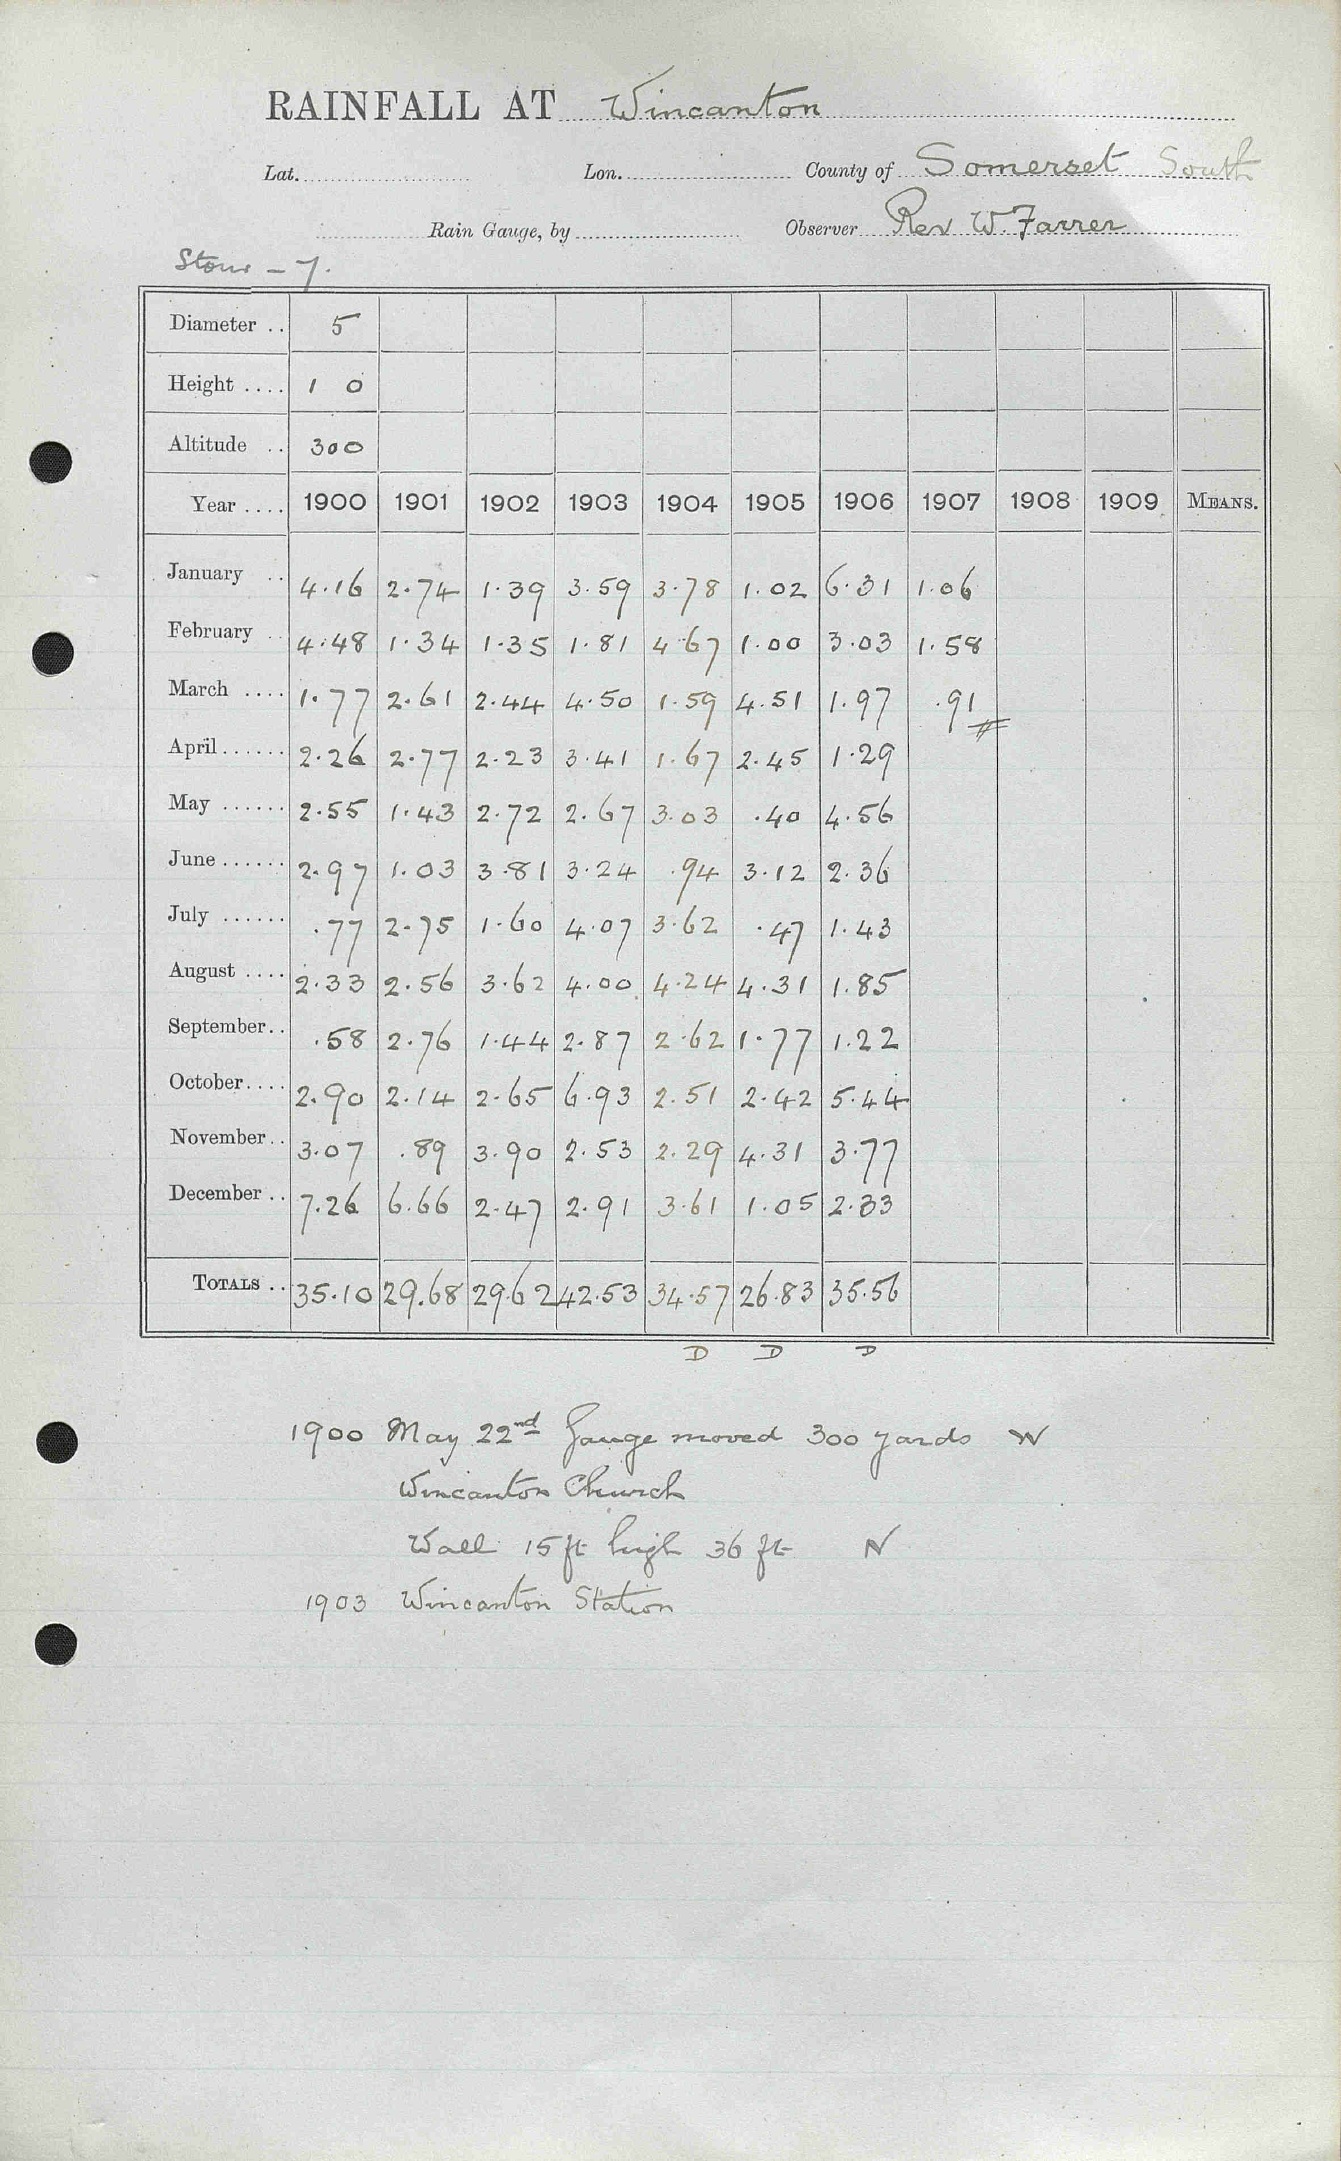 RAINFALL AT Wincanton
Lat. Lon. County of Somerset South
Rain Gauge, by Observer Rev W. Farrer
Stour - 7.
Diameter .. 5
Height .... 1 0
Altitude .. 300
Year .... 1900 1901 1902 1903 1904 1905 1906 1907 1908 1909 MEANS.
January .. 4.16 2.74 1.39 3.59 3.78 1.02 6.31 1.06
February .. 4.48 1.34 1.35 1.81 4.67 1.00 3.03 1.58
March .... 1.77 2.61 2.44 4.50 1.59 4.51 1.97 .91
April ...... 2.26 2.77 2.23 3.41 1.67 2.45 1.29
May ...... 2.55 1.43 2.72 2.67 3.03 .40 4.56
June ...... 2.97 1.03 3.81 3.24 .94 3.12 2.36
July ...... .77 2.75 1.60 4.07 3.62 .47 1.43
August .... 2.33 2.56 3.62 4.00 4.24 4.31 1.85
September.. .58 2.76 1.44 2.87 2.62 1.77 1.22
October.... 2.90 2.14 2.65 6.93 2.51 2.42 5.44
November.. 3.07 .89 3.90 2.53 2.29 4.31 3.77
December .. 7.26 6.66 2.47 2.91 3.61 1.05 2.33
TOTALS .. 35.10 29.68 29.62 42.53 34.57 26.83 35.56
D D D
1900 May 22nd Gauge moved 300 yards W
Wincanton Church
Wall 15 ft high 36 ft N
1903 Wincanton Station